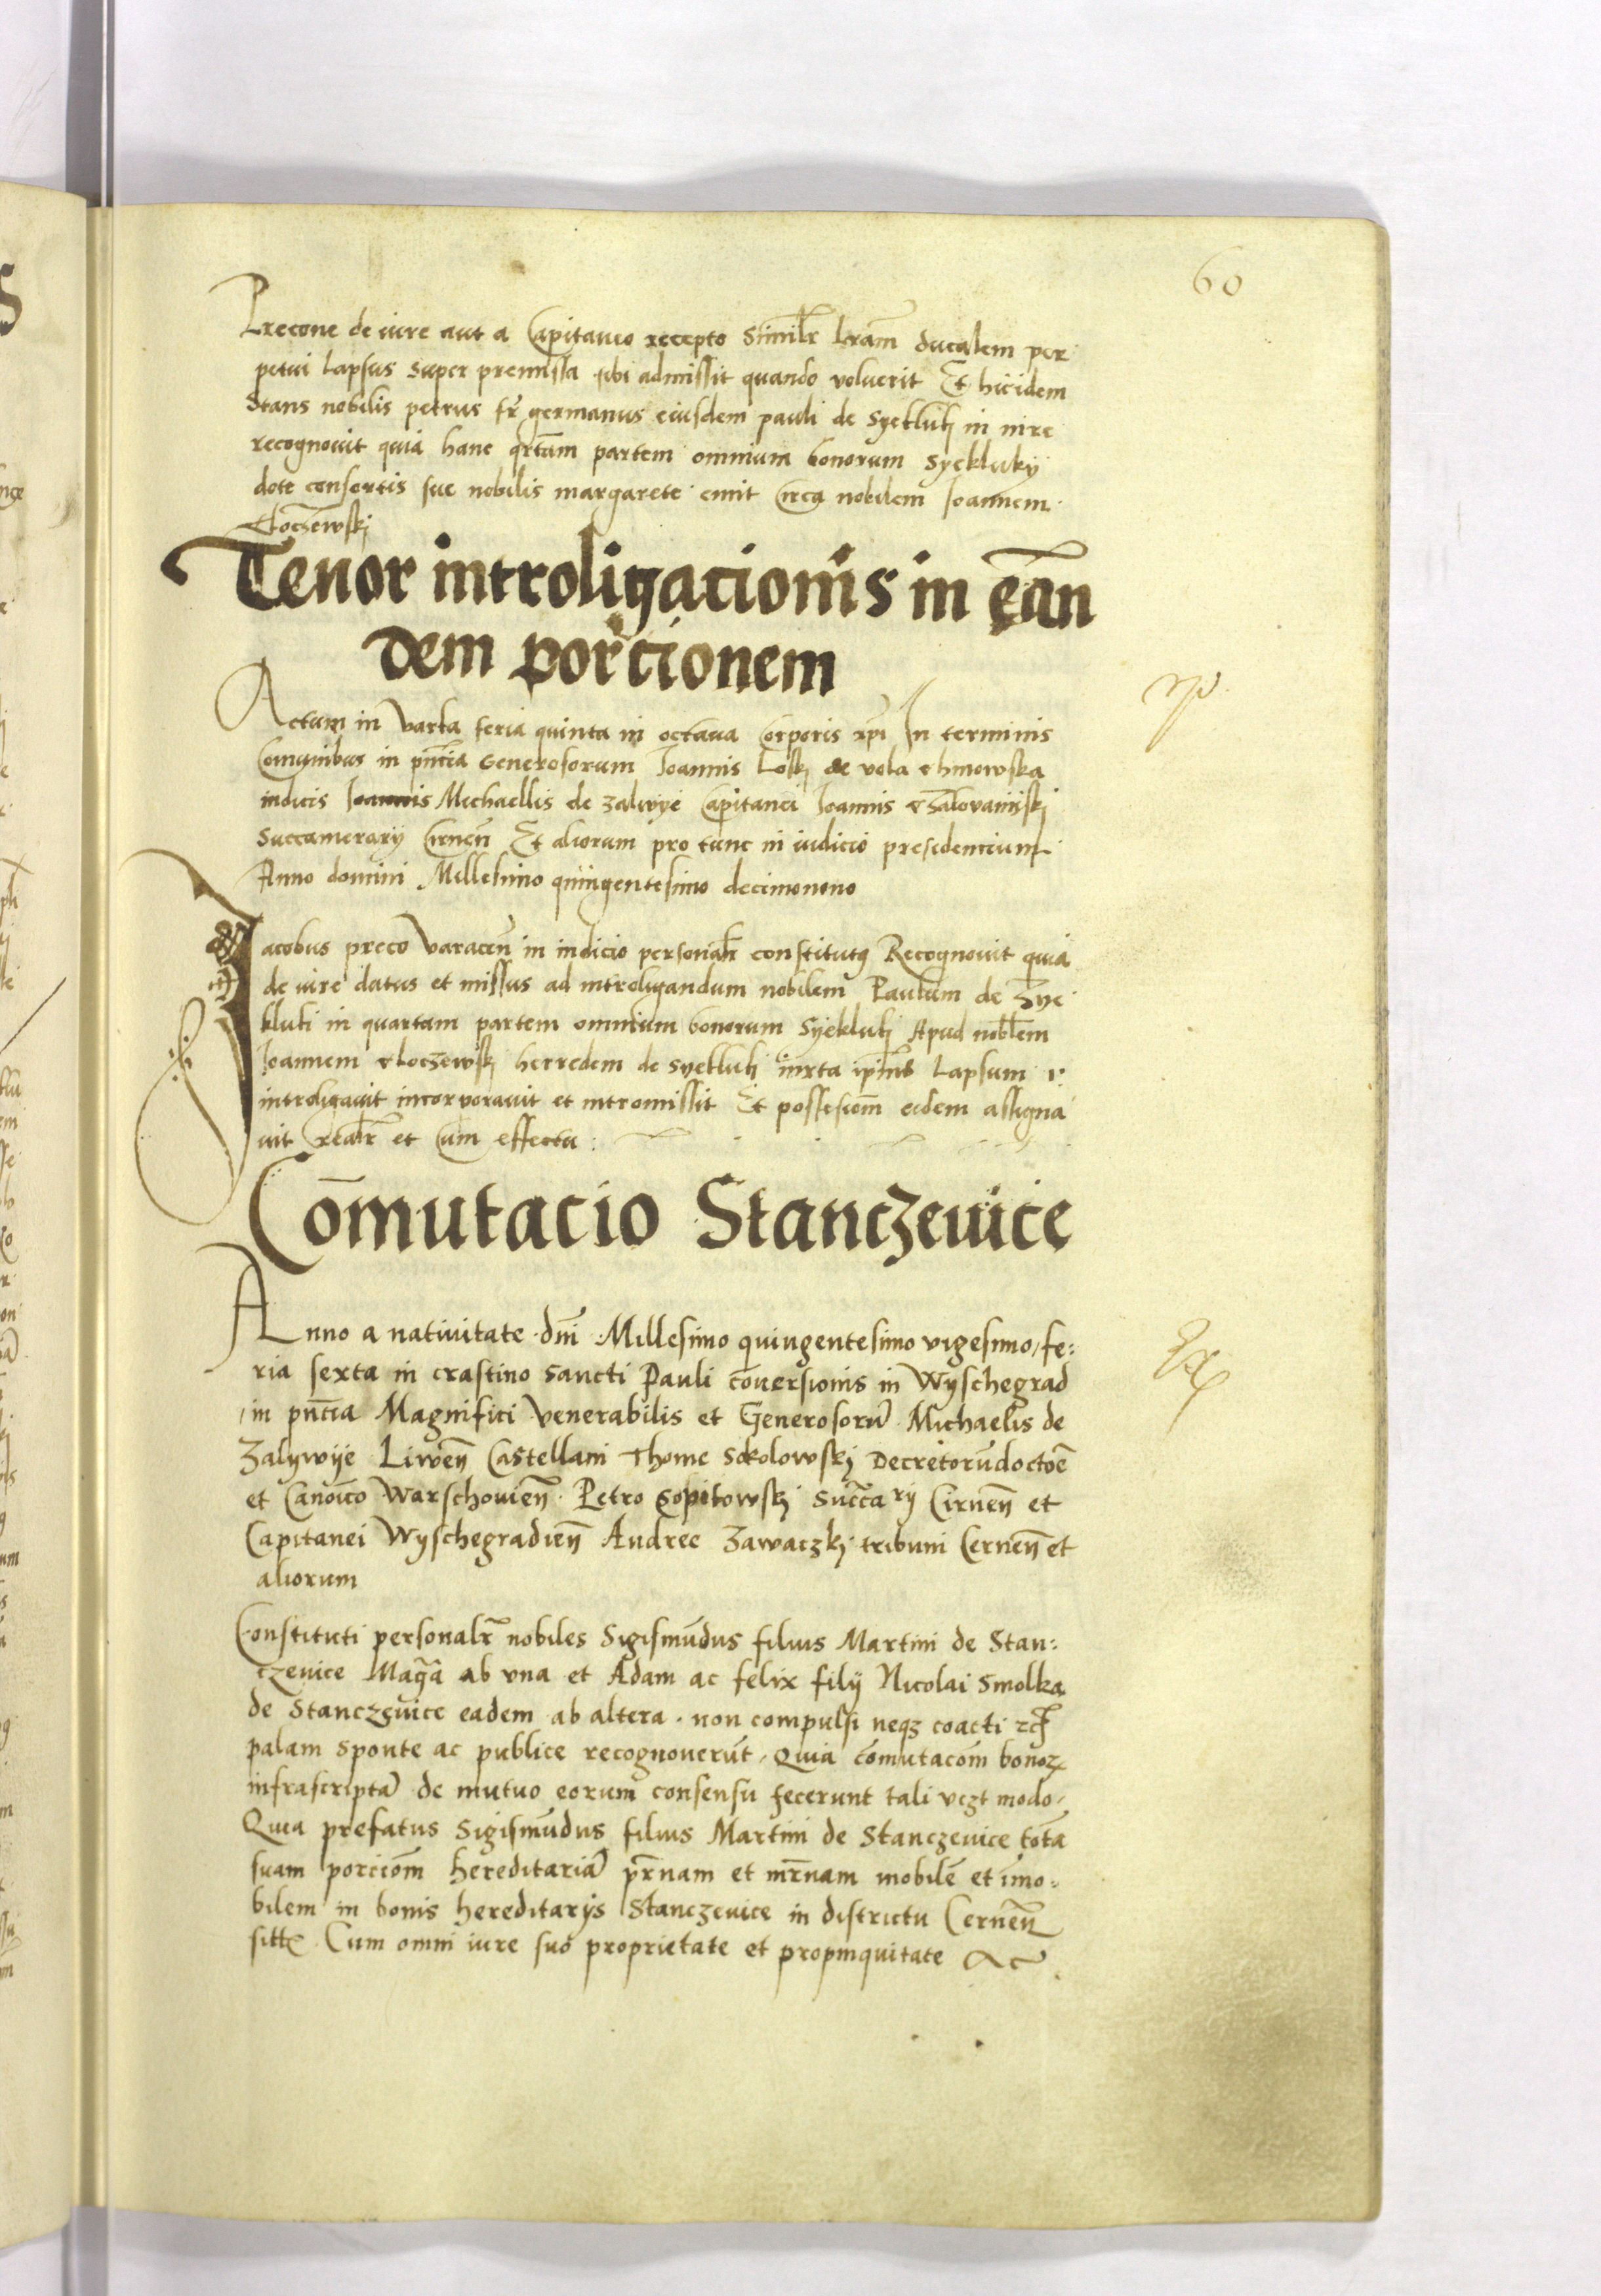 60
Precone de iure aut a Capitaneo recepto Similr Lrām ducalem per
petui Lapsus super premissa sibi admissit quando voluerit Et hicidem
Stans nobilis petrus fr̄ germanus eiusdem pauli de Syekluki in iure
recognouit quia hanc qrtām partem omnium bonorum Syekluky
dote consortis sue nobilis margarete emit circa nobilem Joannem
Cloczewskj
Tenor introligacionis in ean
dem porcionem
Actum in Varka feria quinta in octaua Corporis xpi In terminis
Comunibus in pn̄tia Generosorum Joannis Loskj de vola chinowska
iudicis Michaellis de Zalivye Capitanei Joannis
Succamerarij Cirnen̄ Et aliorum pro tunc in iudicio presidencium
Anno domini Millesimo quingentesimo decimonono
Jacobus preco Varacen̄ in iudicio personalr̄ constitutus Recognouit quia
de iure datus et missus ad introligandum nobilem Paulum de Sye
kluki in quartam partem omnium bonorum Syekluki Apud nobl̄em
Joannem cloczewskj herredem de Syekluki iuxta ipius Lapsum
introligauit incorporauit et intromissit Et possesiom̄ eidem assigna
uit realr̄ et cum effectu :
Com̄utacio Stanczeuice
Anno a natiuitate dn̄i Millesimo quingentesimo vigesimo, fe:
ria sexta in crastino sancti Pauli cōuersionis in Wyschegrad
in pn̄tia Magnifici Venerabilis et Generosorū Michaelis de
Zalywije Liwen̄ Castellani Thome Sokolowskj Decretorū doctoē
et Canōico Warschouien̄ Petro Sopikowskj Succ̄a rij Cirnen̄ et
Capitanei Wyschegradien̄ Andree Zawaczkj tribuni Cernen̄ et
aliorum
Constituti personalr̄ nobiles Sigismūdus filius Martini de Stan:
czeuice Mag̃a ab vna et Adam ac felix filij Nicolai Smolka
de Stanczeuice eadem ab altera . non compulsi neqz coacti
palam sponte ac publice recognouerūt, Quia cōmutacōm bonoꝝ
infrascriptā de mutuo eorum consensu fecerunt tali vczt modo
Quia prefatus Sigismūdus filius Martini de Stanczeuice totā
suam porciōm hereditariā pr̄nam et mr̄nam mobilē et īmo:
bilem in bonis hereditarijs Stanczeuice in districtu Cernen̄
Cum omni iure suo proprietate et propinquitate ac